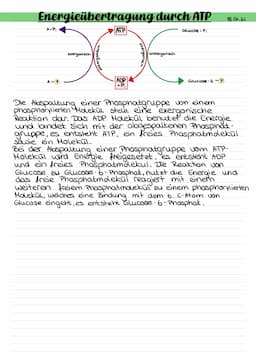 Energieübertragung durch ATP
ATP
Glucose + Pi
exergonisch
ADP + Pi
Glucose - 6 - P
Die Abspaltung einer Phosphatgruppe von einem
phosphorylierten Molekül stellt eine exergonische
Reaktion dar. Das ADP Molekül benutzt die Energie
und bindet sich mit der abgespaltenen Phosphat-
gruppe, es entsteht ATP, ein freies Phosphatmolekül
sowie ein Molekül.
Bei der Abspaltung einer Phosphatgruppe vom ATP-
Molekül wird Energie freigesetzt, es entsteht ADP
und ein freies Phosphatmolekül. Die Reaktion von
Glucose zu Glucose-6-Phosphat, nutzt die Energie und
das freie Phosphatmolekül reagiert mit einem
weiteren freiem Phosphatmolekül zu einem phosphorylierten
Molekül, welches eine Bindung mit dem 6. C-Atom von
Glucose eingeht, es entsteht Glucose-6-Phosphat.